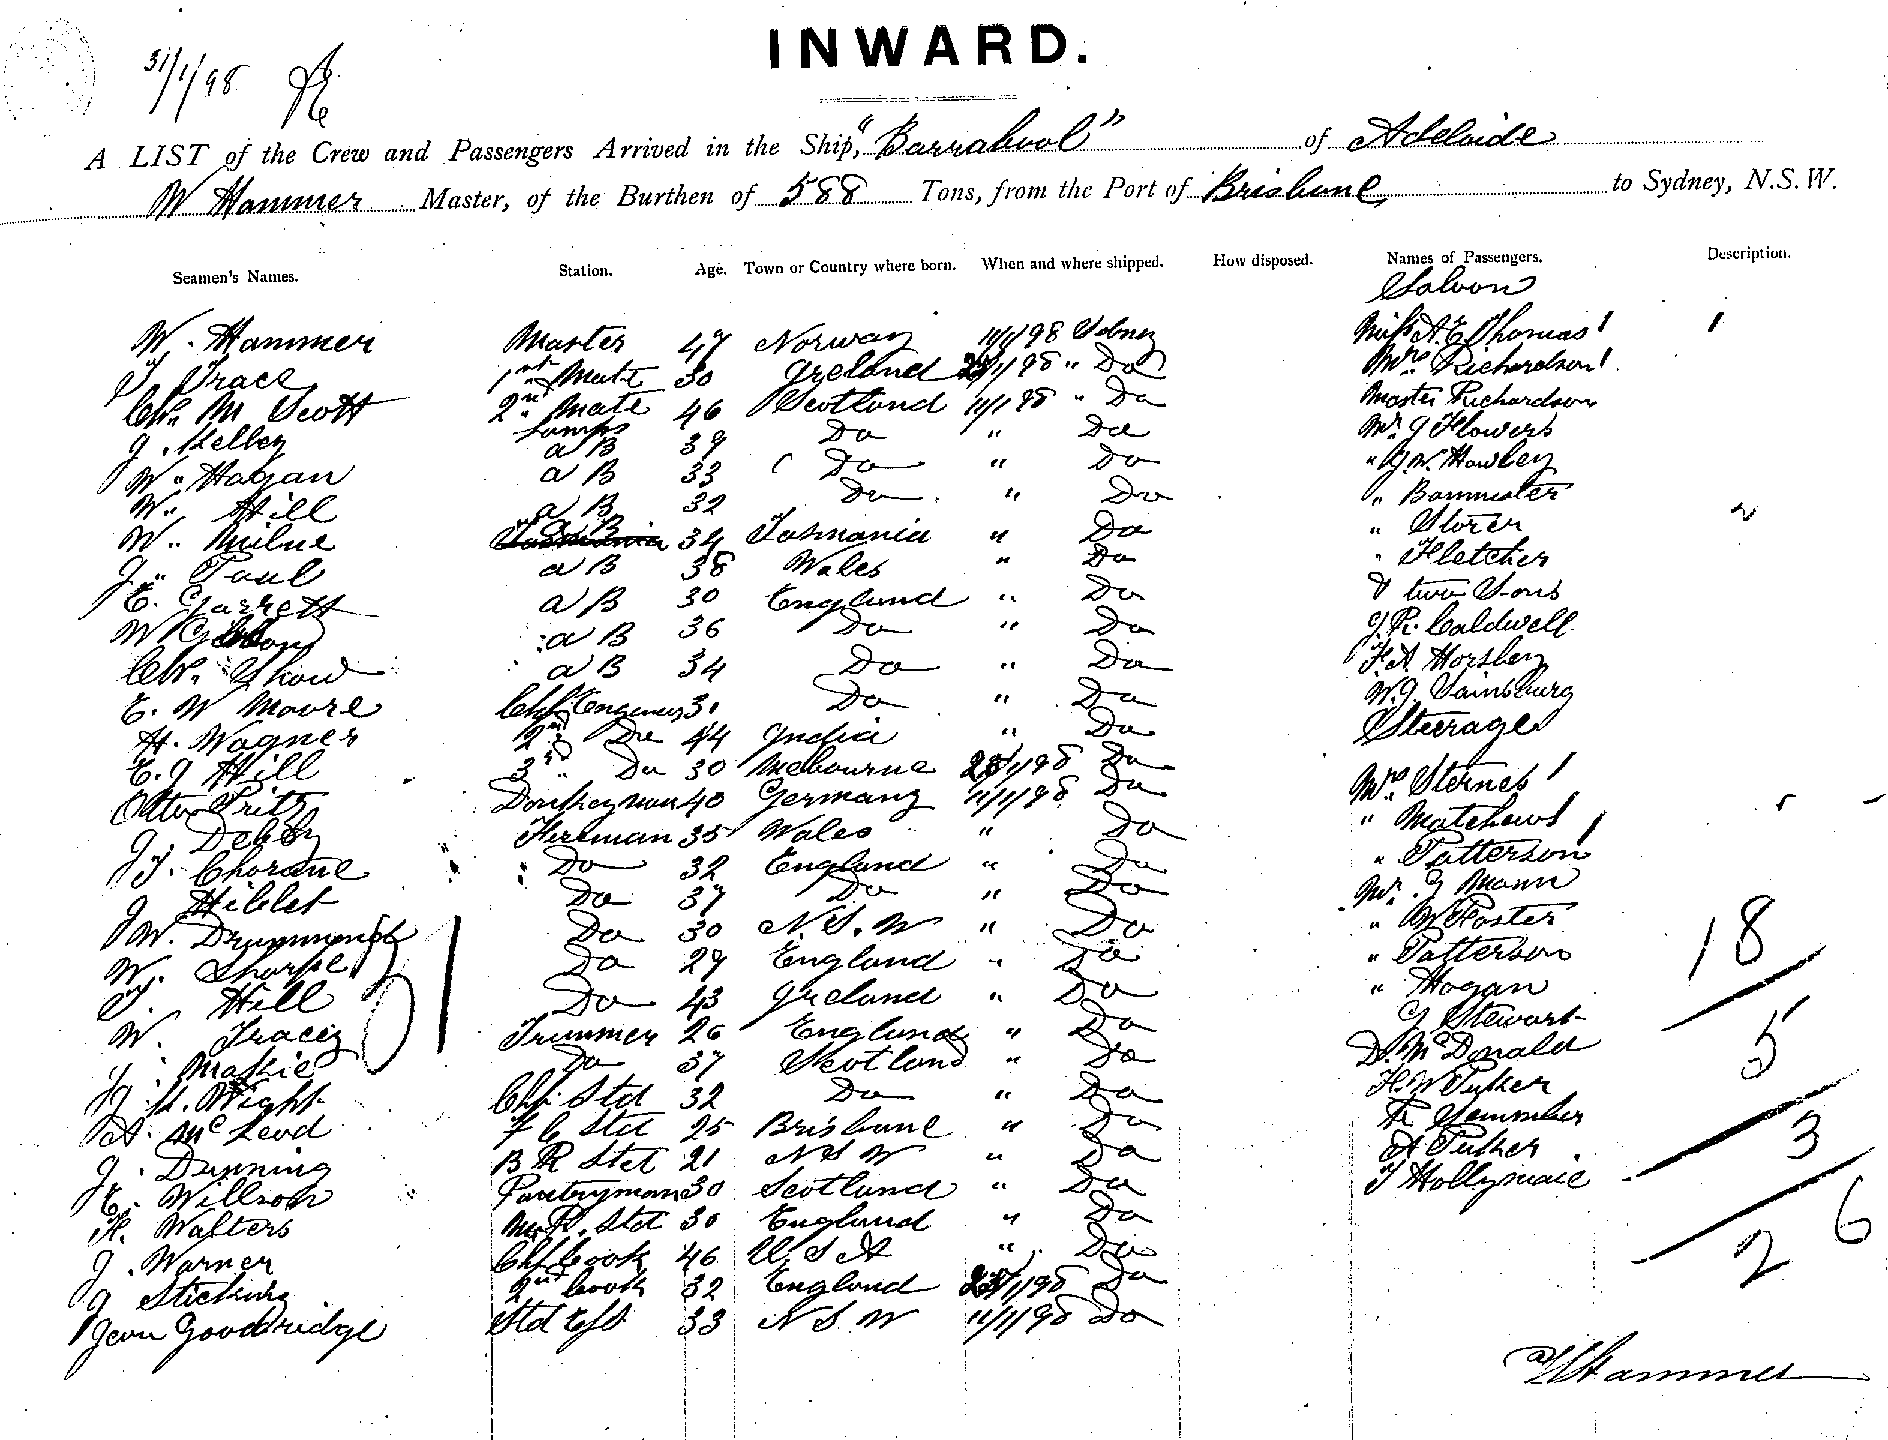 INWARD.
31/1/98
A LIST of the Crew and Passengers Arrived in the Ship, "Barrabool" of Adelaide
W Hammer Master, of the Burthen of 588 Tons, from the Port of Brisbane to Sydney, N.S.W.
Seamen's Names. Station. Age. Town or Country where born. When and where shipped. How disposed. Names of Passengers. Description.
Saloon
W. Hammer Master 47 Norway 11/1/98 Sydney Miss A.E. Thomas 1
T Trace 1st Mate 30 Ireland /1/98 " Do Mrs Richardson 1
Ch. M Scott 2nd Mate 46 Scotland 11/1/98 " Do Master Richardson
J. Kelley Lamps a B 39 Do " Do Mr J Flowers
W. Hagan a B 33 Do " Do " J.W. Hawley
W. Hill a B 32 Do " Do " Bannister
W. Milne a B 34 Tasmania " Do " Storer
J. Paul a B 38 Wales " Do " Fletcher
E. Garrett a B 30 England " Do & two Sons
W a B 36 Do " Do J.R. Caldwell
Ch. Show a B 34 Do " Do F.A. Horsley
E. W Moore Chf Engineer 3 Do " Do W.J. Sainsburg
H. Wagner 2nd Do 44 India " Do Steerage
E. J Hill 3rd " Do 30 Melbourne /1/98 Do Mrs Sternes 1
Otto Fritz Donkeyman 40 Germany 11/1/98 Do " Matchews 1
J. Fireman 35 Wales " Do " Patterson 1
J. Do 32 England " Do Mr. J Mann
J Do 37 Do " Do " W Foster
W. Do 30 N.S.W " Do " Patterson
W. Sharpe Do 29 England " Do " Hogan
T. Hill Do 43 Ireland " Do G Stewart
W. Tracey Trimmer 26 England " Do D. McDonald
J. Mathie Do 37 Scotland " Do
J. H. Wight Chf. Std 32 Do " Do
A. McLeod F C Std 25 Brisbane " Do
J. Dunning B R Std 21 N S W " Do T Hollymaic
E. Willson Pantryman 30 Scotland " Do
F. Walters M.R. Std 30 England " Do
J. Warner Chf Cook 46 U S A " Do
J 2nd Cook 32 England /1/98 Do
Jean Gooddridge Std Ess 33 N S W 11/1/98 Do
18
5
3
6
2
W Hammer